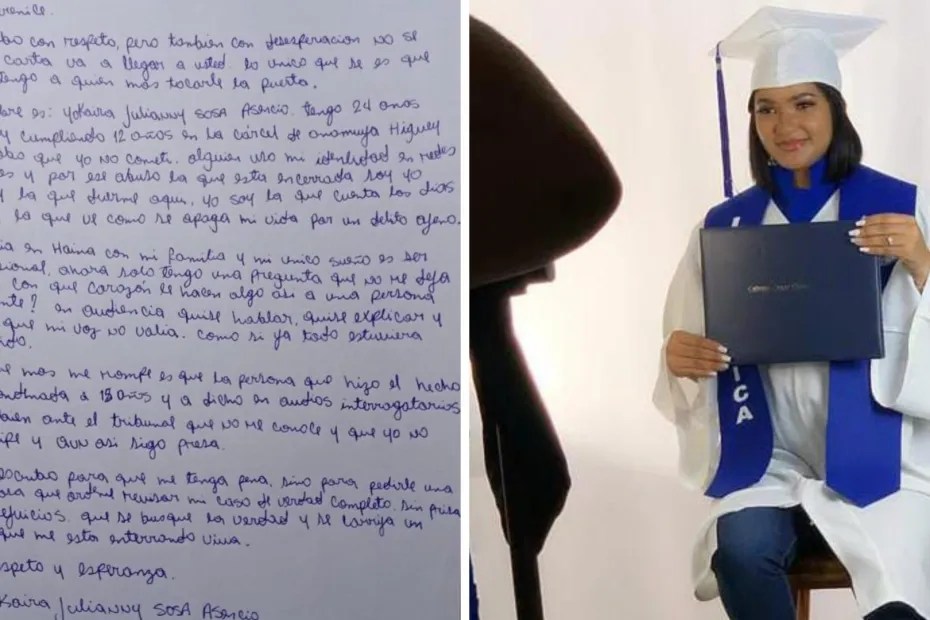 bo con respeto, pero tambien con desesperacion no se
carta va a llegar a usted lo unico que se es que
tengo a quien mas tocarle la puerta.
bre es: Yokaira Julianny Sosa Asencio. tengo 24 anos
y cumpliendo 12 años en la cárcel de anamuya Higuey
bo que yo no cometi. alguien uso mi identidad en redes
es y por ese abuso la que esta encerrada soy yo
y la que duerme aqui, yo soy la que cuenta los dias
la que ve como se apaga mi vida por un delito ajeno.
ia en Haina con mi familia y mi unico sueño es ser
sional. ahora solo tengo una pregunta que no me deja
con que corazón le hacen algo asi a una persona
nte? en audiencia quise hablar, quise explicar y
que mi voz no valia. como si ya todo estuviera
do.
e mas me rompe es que la persona que hizo el hecho
ondenada a años y a dicho en audios interrogatorios
bien ante el tribunal que no me conoce y que yo no
ipe y aun asi sigo presa.
escribo para que me tenga pena, sino para pedirle una
ara que ordene revisar mi caso de verdad completo. sin prisa
ejuicios. que se busque la verdad y se corrija un
que me esta enterrando viva.
speto y esperanza.
Kaira Julianny Sosa Asencio
ICA